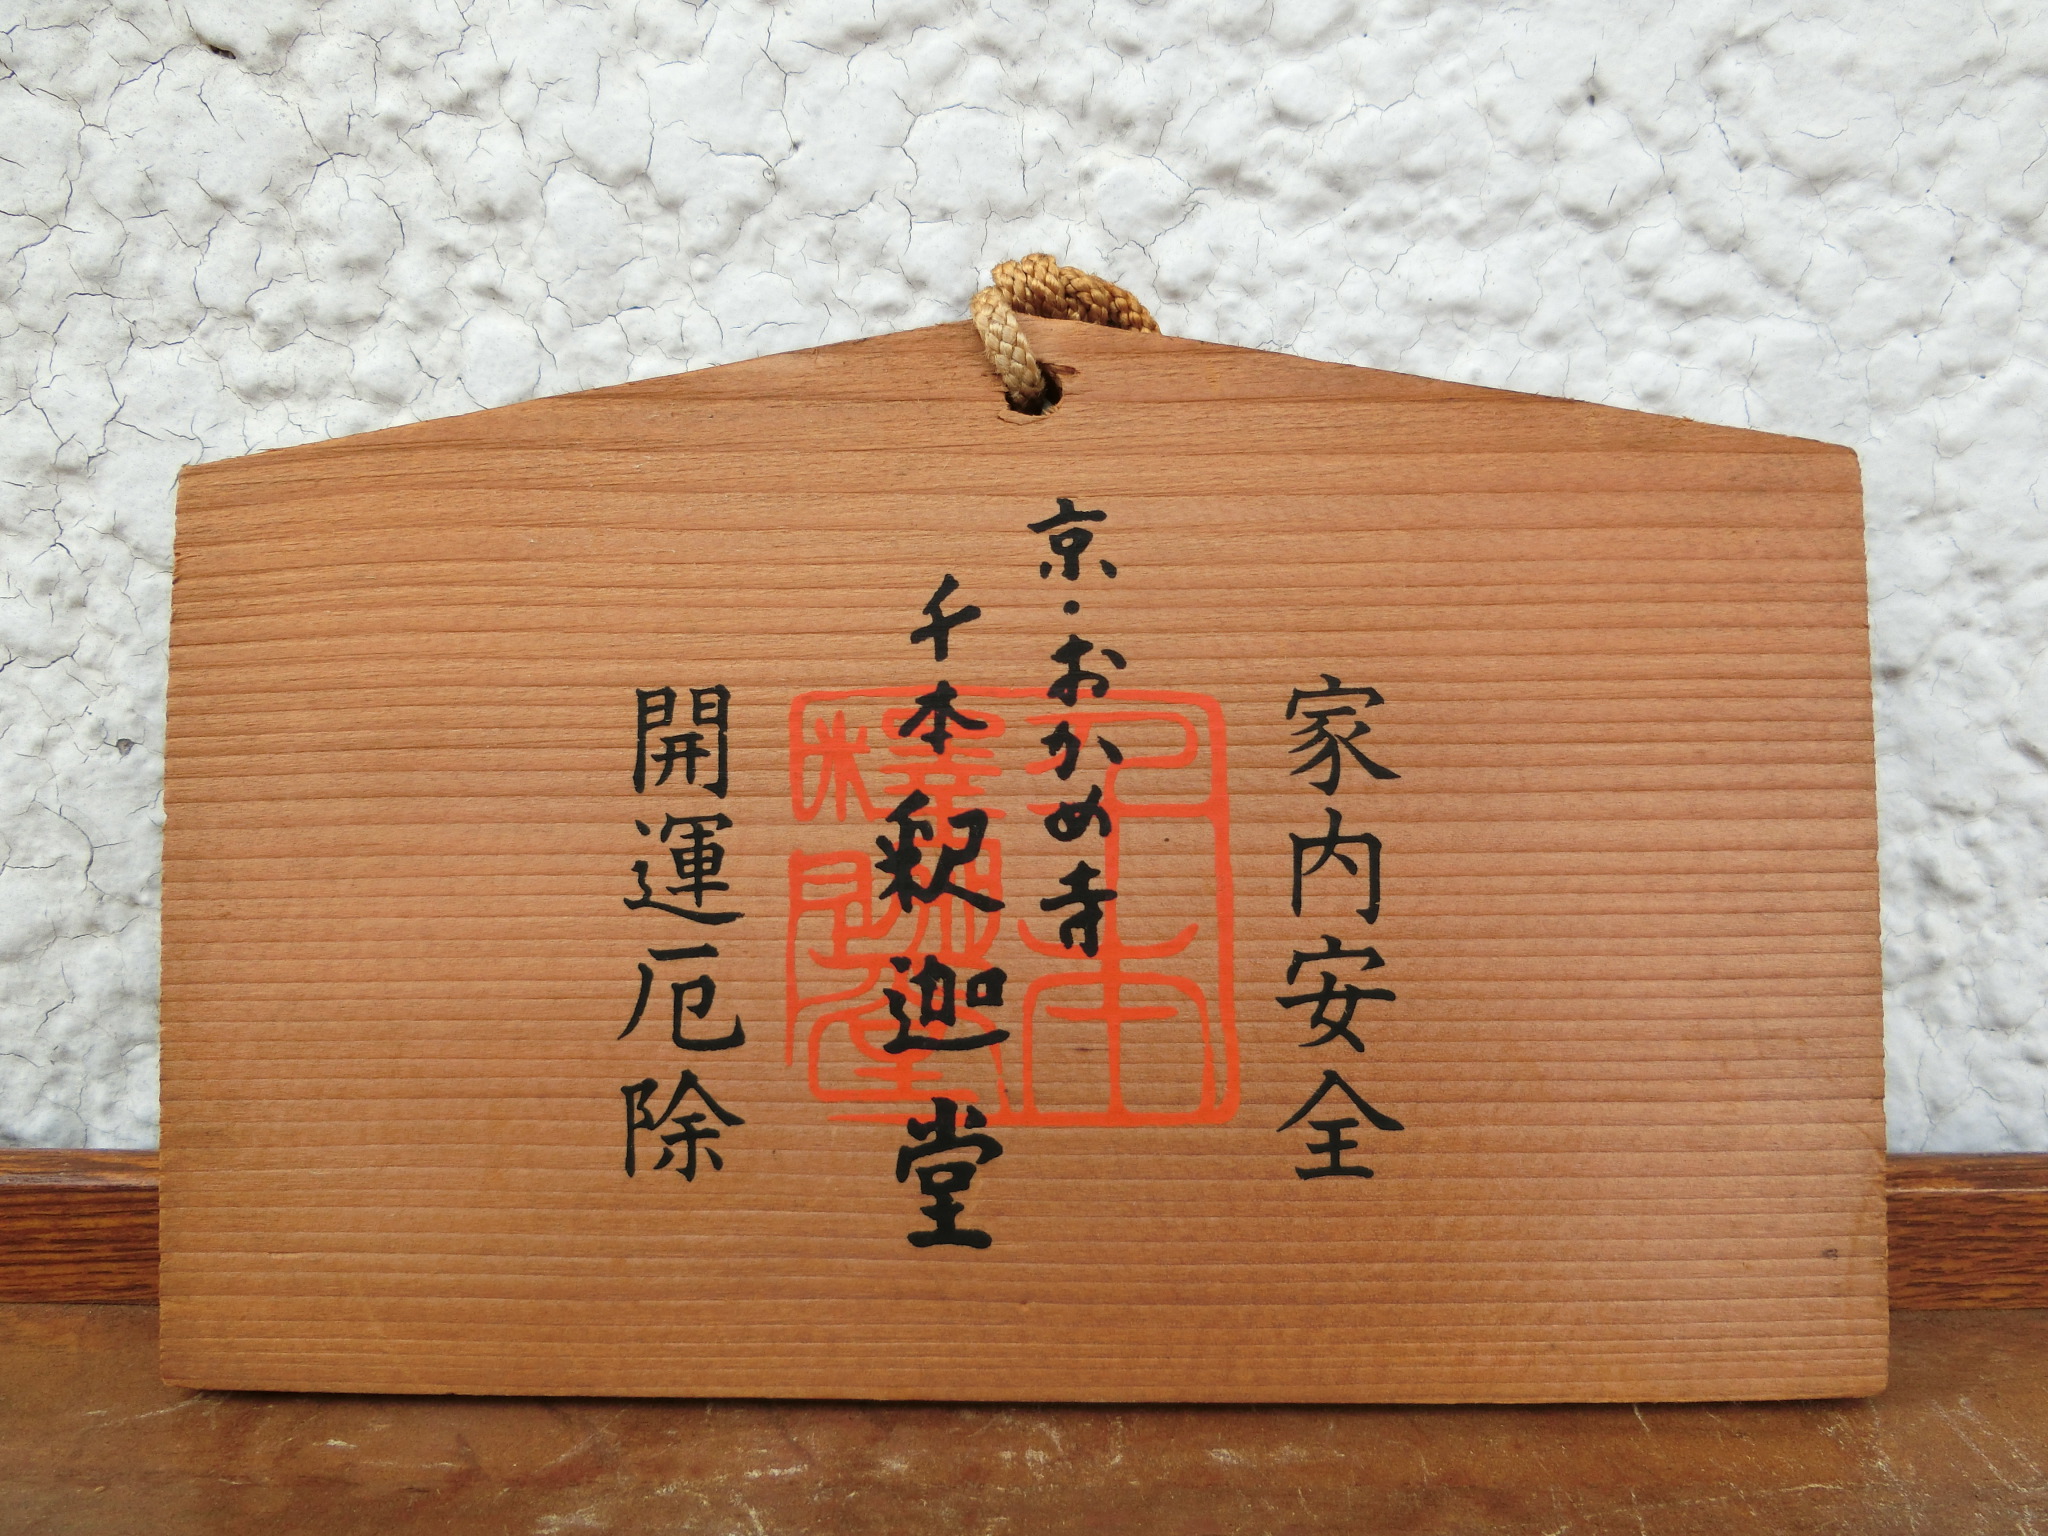 家内安全
京・おかめ寺
千本釈迦堂
開運厄除